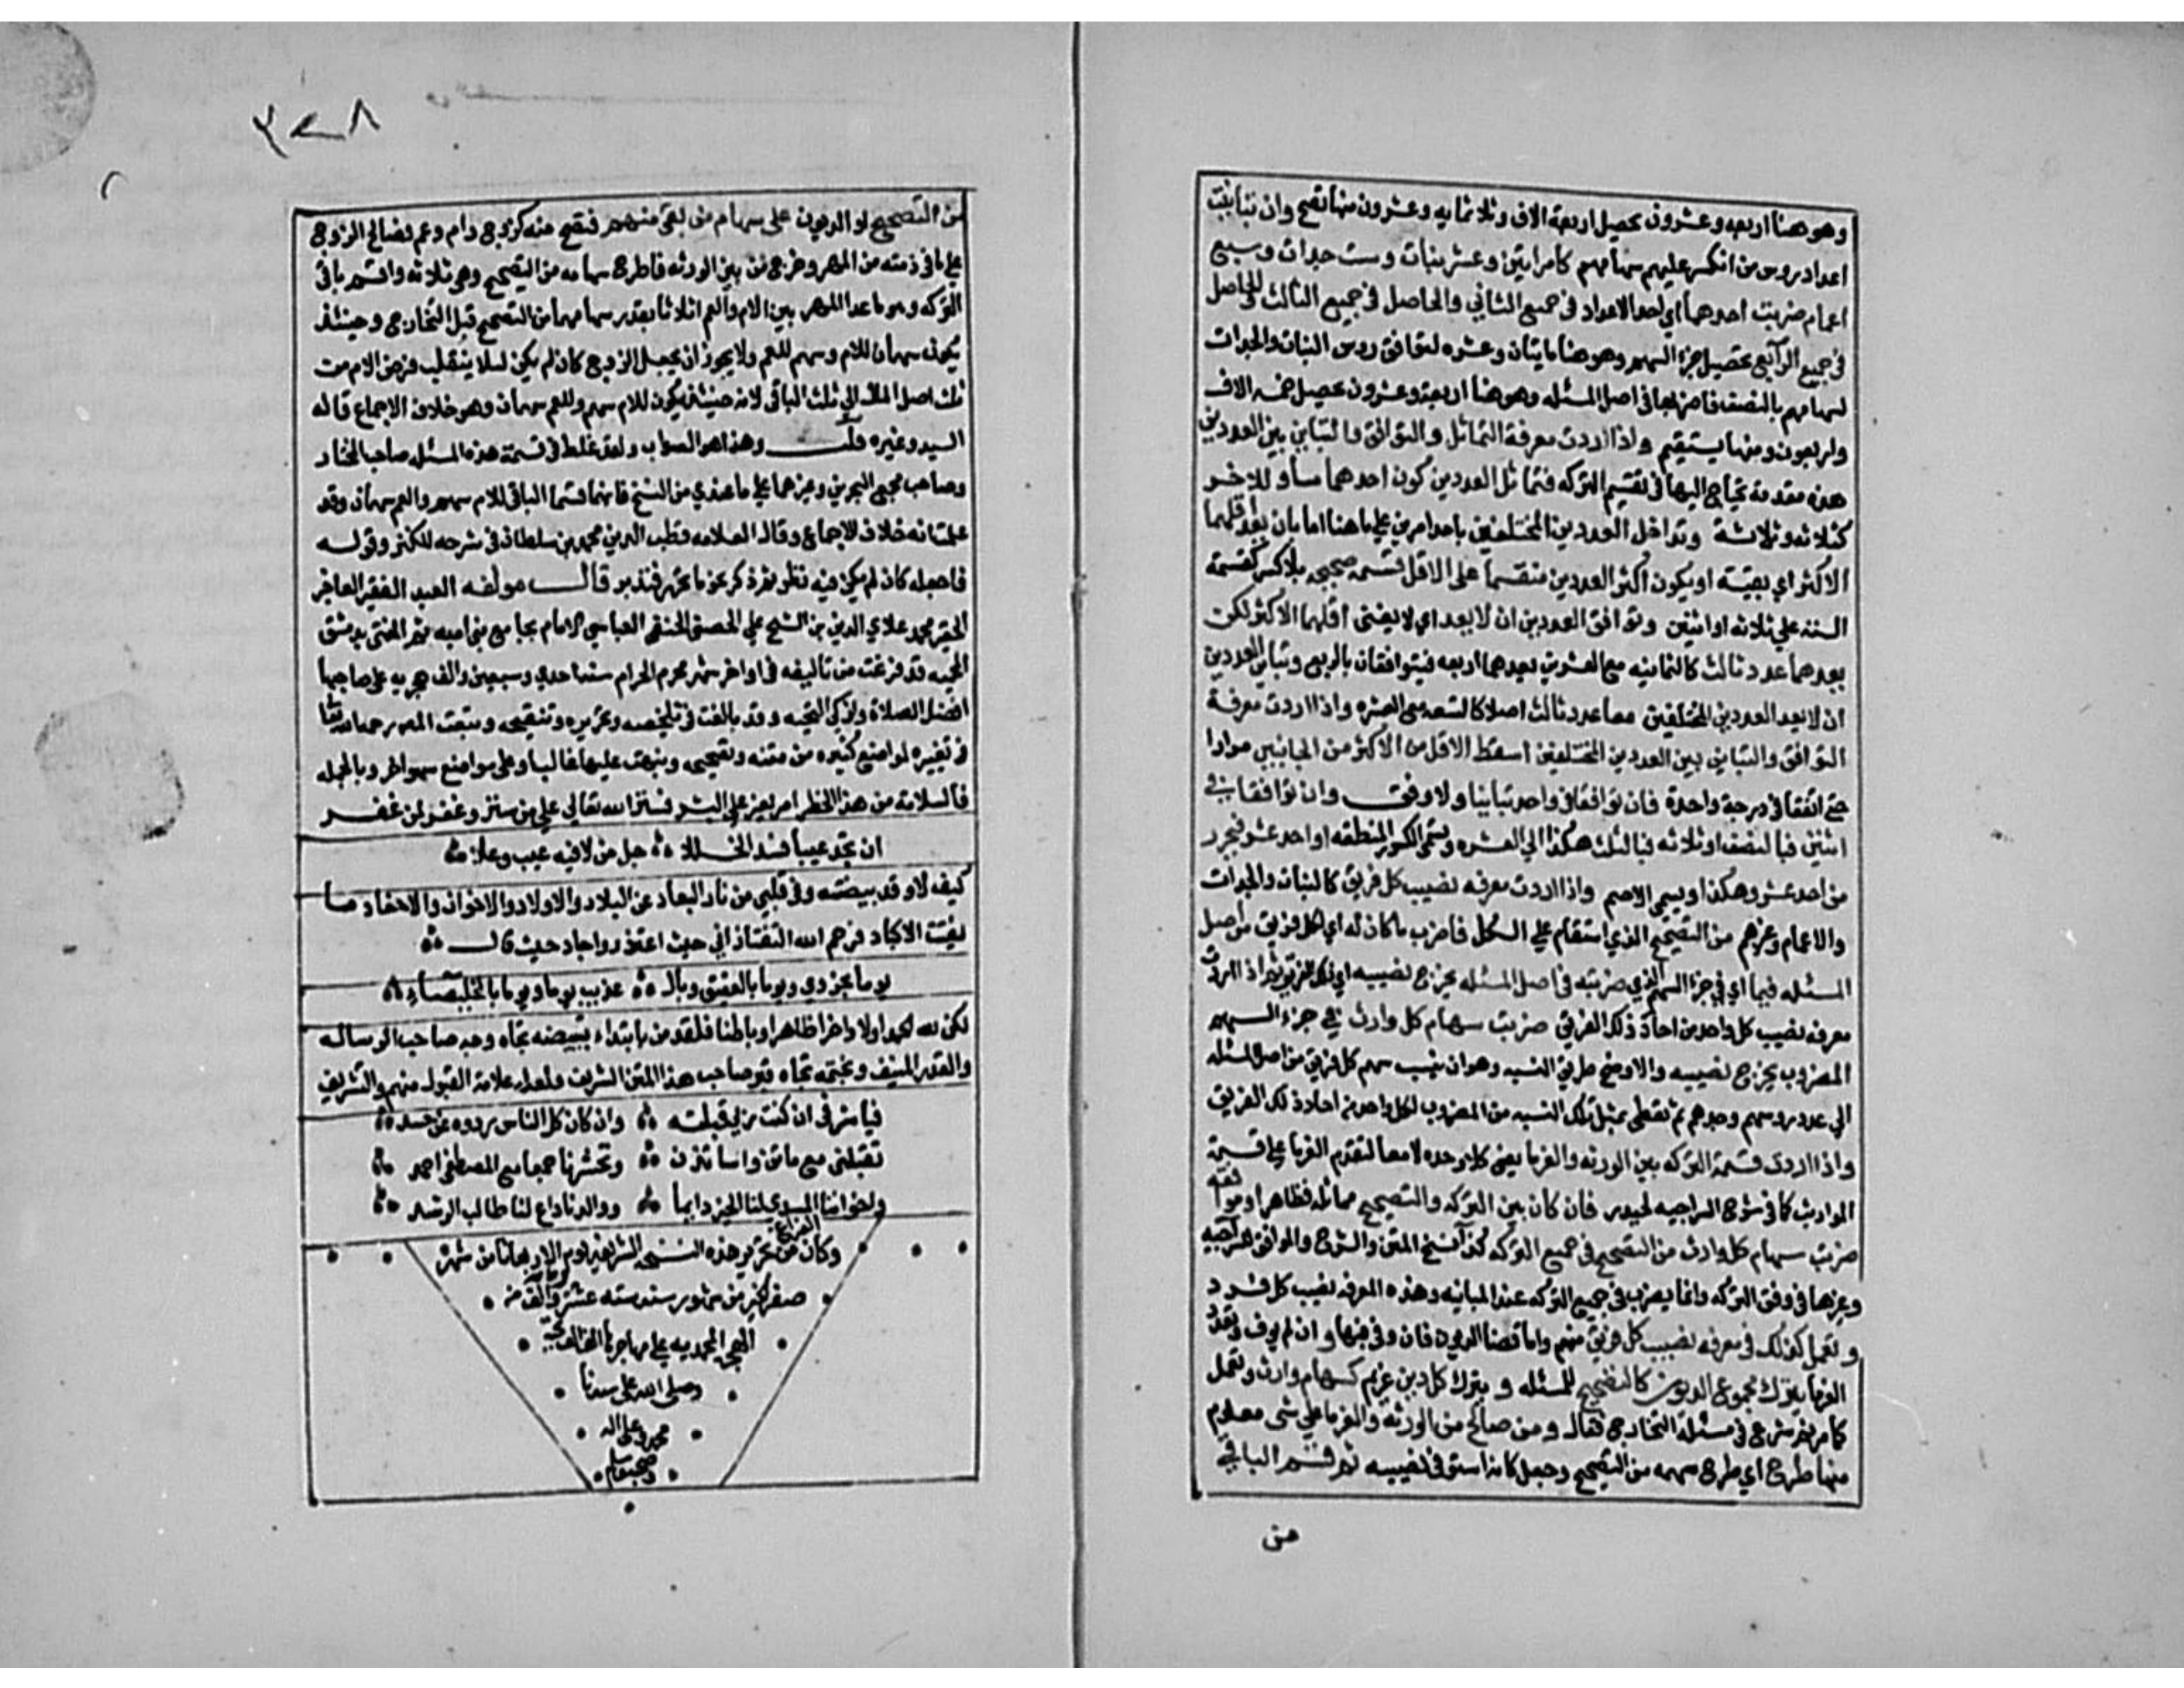 وهو هنا اربعه وعشرون يحصل اربعة الاف وثلاثمايه وعشرون منها تصح وان تباينت
اعداد روس من انكسر عليهم سهامهم كامراتين وعشر بنات وست جدات وسبع
اعمام ضربت احدهما اي احد الاعداد في جميع الثاني والحاصل في جميع الثالث والحاصل
في جميع الرابع يحصل جزء السهم وهو هنا مايتان وعشره لتوافق روس البنات والجدات
لسهامهم بالنصف فاضربها في اصل المسئله وهو هنا اربعة وعشرون يحصل خمسه الاف
واربعون ومنها يستقيم واذا اردت معرفة التماثل والتوافق والتباين بين العددين
هذه مقدمة يحتاج اليها في تقسيم التركه فتماثل العددين كون احدهما مساو للاخر
كثلاثه وثلاثة وتداخل العددين المختلفين باحد امرين علي ما هنا اما بان يعد اقلهما
الاكثر اي يفنيه او يكون اكثر العددين منقسما على الاقل قسمة صحيحه بلا كسر كقسمة
السته علي ثلاثه او اثنين وتوافق العددين ان لا يعد اي لا يفنى اقلهما الاكثر لكن
يعدهما عدد ثالث كالثمانيه مع العشرين يعدهما اربعه فيتوافقان بالربع وتباين العددين
ان لا يعد العددين المختلفين معا عدد ثالث اصلا كالتسعه مع العشره واذا اردت معرفة
التوافق والتباين بين العددين المختلفين اسقط الاقل من الاكثر من الجانبين مرارا
حتي اتفقا في درجة واحدة فان توافقا في واحد تباينا ولا وفق وان توافقا في
اثنين فبالنصف او ثلاثه فبالثلث هكذا الي العشره وتسمى الكسور المنطقه او احد عشر فبجزء
من احد عشر وهكذا ويسمي الاصم واذا اردت معرفه نصيب كل فريق كالبنات والجدات
والاعمام وغيرهم من التصحيح الذي استقام علي الكل فاضرب ما كان له اي لكل فريق من اصل
المسئله فيما اي في جزء السهم الذي ضربته في اصل المسئله يخرج نصيبه اي ذلك الفريق واذا اردت
معرفه نصيب كل واحد من احاد ذلك الفريق ضربت سهام كل وارث في جزء السهم
المضروب يخرج نصيبه والاوضح طريق النسبه وهو ان ينسب سهم كل فريق من اصل المسئله
الي عدد روسهم وحدهم ثم تعطى بمثل تلك النسبه من المضروب لكل واحد من احاد ذلك الفريق
واذا اردت قسمة التركه بين الورثه والغرما يعني كلا وحده لا معا لتقدم الغرما علي قسمة
المواريث كما في شرح السراجيه لحيدر فان كان بين التركه والتصحيح مماثله فظاهر او موافقه
ضربت سهام كل وارث من التصحيح في جميع التركه كذا نسخ المتن والشرح والموافق للسراجيه
وغيرها في وفق التركه وانما يضرب في جميع التركه عند المباينه وهذه لمعرفه نصيب كل فرد
وتعمل كذلك في معرفه نصيب كل فريق منهم واما قضا الديون فان وفي فبها وان لم يوف وتعدد
الغرما ينزل مجموع الديون كالتصحيح للمسئله وينزل كل دين غريم كسهام وارث وتعمل
كما مر ثم شرع في مسئلة التخارج فقال ومن صالح من الورثة والغرما علي شي معلوم
منها طرح اي طرح سهمه من التصحيح وجعل كانه استوفى نصيبه ثم قسم الباقي
من
٣٧٨
من التصحيح او الديون على سهام من بقى منهم فتصح منه كزوج وام وعم فصالح الزوج
علي ما في ذمته من المهر وخرج من بين الورثه فاطرح سهامه من التصحيح وهي ثلاثه واقسم باقي
التركه وهو ما عدا المهر بين الام والعم اثلاثا بقدر سهامهما من التصحيح قبل التخارج وحينئذ
يكون سهمان للام وسهم للعم ولا يجوز ان يجعل الزوج كان لم يكن لئلا ينقلب فرض الام من
ثلث اصل المال الي ثلث الباقي لانه حينئذ يكون للام سهم وللعم سهمان وهو خلاف الاجماع قاله
السيد وغيره قلت وهذا هو الصواب ولقد غلط في قسمة هذه المسئله صاحب المختار
وصاحب مجمع البحرين وغيرهما علي ما عندي من النسخ فانهما قسما الباقي للام سهم وللعم سهمان وقد
علمت انه خلاف الاجماع وقال العلامه قطب الدين محمد بن سلطان في شرحه للكنز وقوله
فاجعله كان لم يكن فيه نظر ثم ذكر نحو ما تحرر فتدبر قال مولفه العبد الفقير العاجز
الحقير محمد علاي الدين بن الشيخ علي الحصني الحنفي العباسي الامام بجامع بني اميه ثم المفتى بدمشق
المحميه قد فرغت من تاليفه في اواخر شهر محرم الحرام سنة احدي وسبعين والف هجريه على صاحبها
افضل الصلاة وازكي التحيه وقد بالغت في تلخيصه وتحريره وتنقيحه وتبعت المصنف رحمه الله تعالى
في تغييره لمواضع كثيره من متنه وتصحيحه ونبهت عليها غالبا وعلى مواضع سهو اخر وبالجمله
فالسلامة من هذا الخطر امر يعز علي البشر فستر الله تعالي علي من ستر وغفر لمن غفر
ان تجد عيبا فسد الخللا جل من لا فيه عيب وعلا
كيف لا وقد بيضته وفي قلبي من نار البعاد عن البلاد والاولاد والاخوان والاحفاد ما
يفتت الاكباد فرحم الله التفتازاني حيث اعتذر واجاد حيث قال
يوما بحزوي ويوما بالعقيق وبالـ عذيب يوما ويوما بالخليصاء
لكن لله الحمد اولا واخرا ظاهرا وباطنا فلقد من بابتداء تبييضه تجاه وجه صاحب الرساله
والقدر المنيف وبختمه تجاه قبر صاحب هذا المتن الشريف ولعله علامة القبول منهم والتشريف
فيا شرفي ان كنت ربي قبلته وان كان كل الناس ردوه عن حسد
تقبلني مع ماتن واساتذن وتحشرنا جمعا مع المصطفى احمد
واخواننا المسدي لنا الخير دايما ووالدنا داع لنا طالب الرشد
وكان الفراغ من تحرير هذه النسخه الشريفه يوم الاربعا ثامن شهر
صفر الخير من شهور سنة سته عشر ومايه والف من
الهجره المحمديه علي مهاجرها الف تحيه
وصلى الله على سيدنا
محمد وعلى اله
وصحبه وسلم